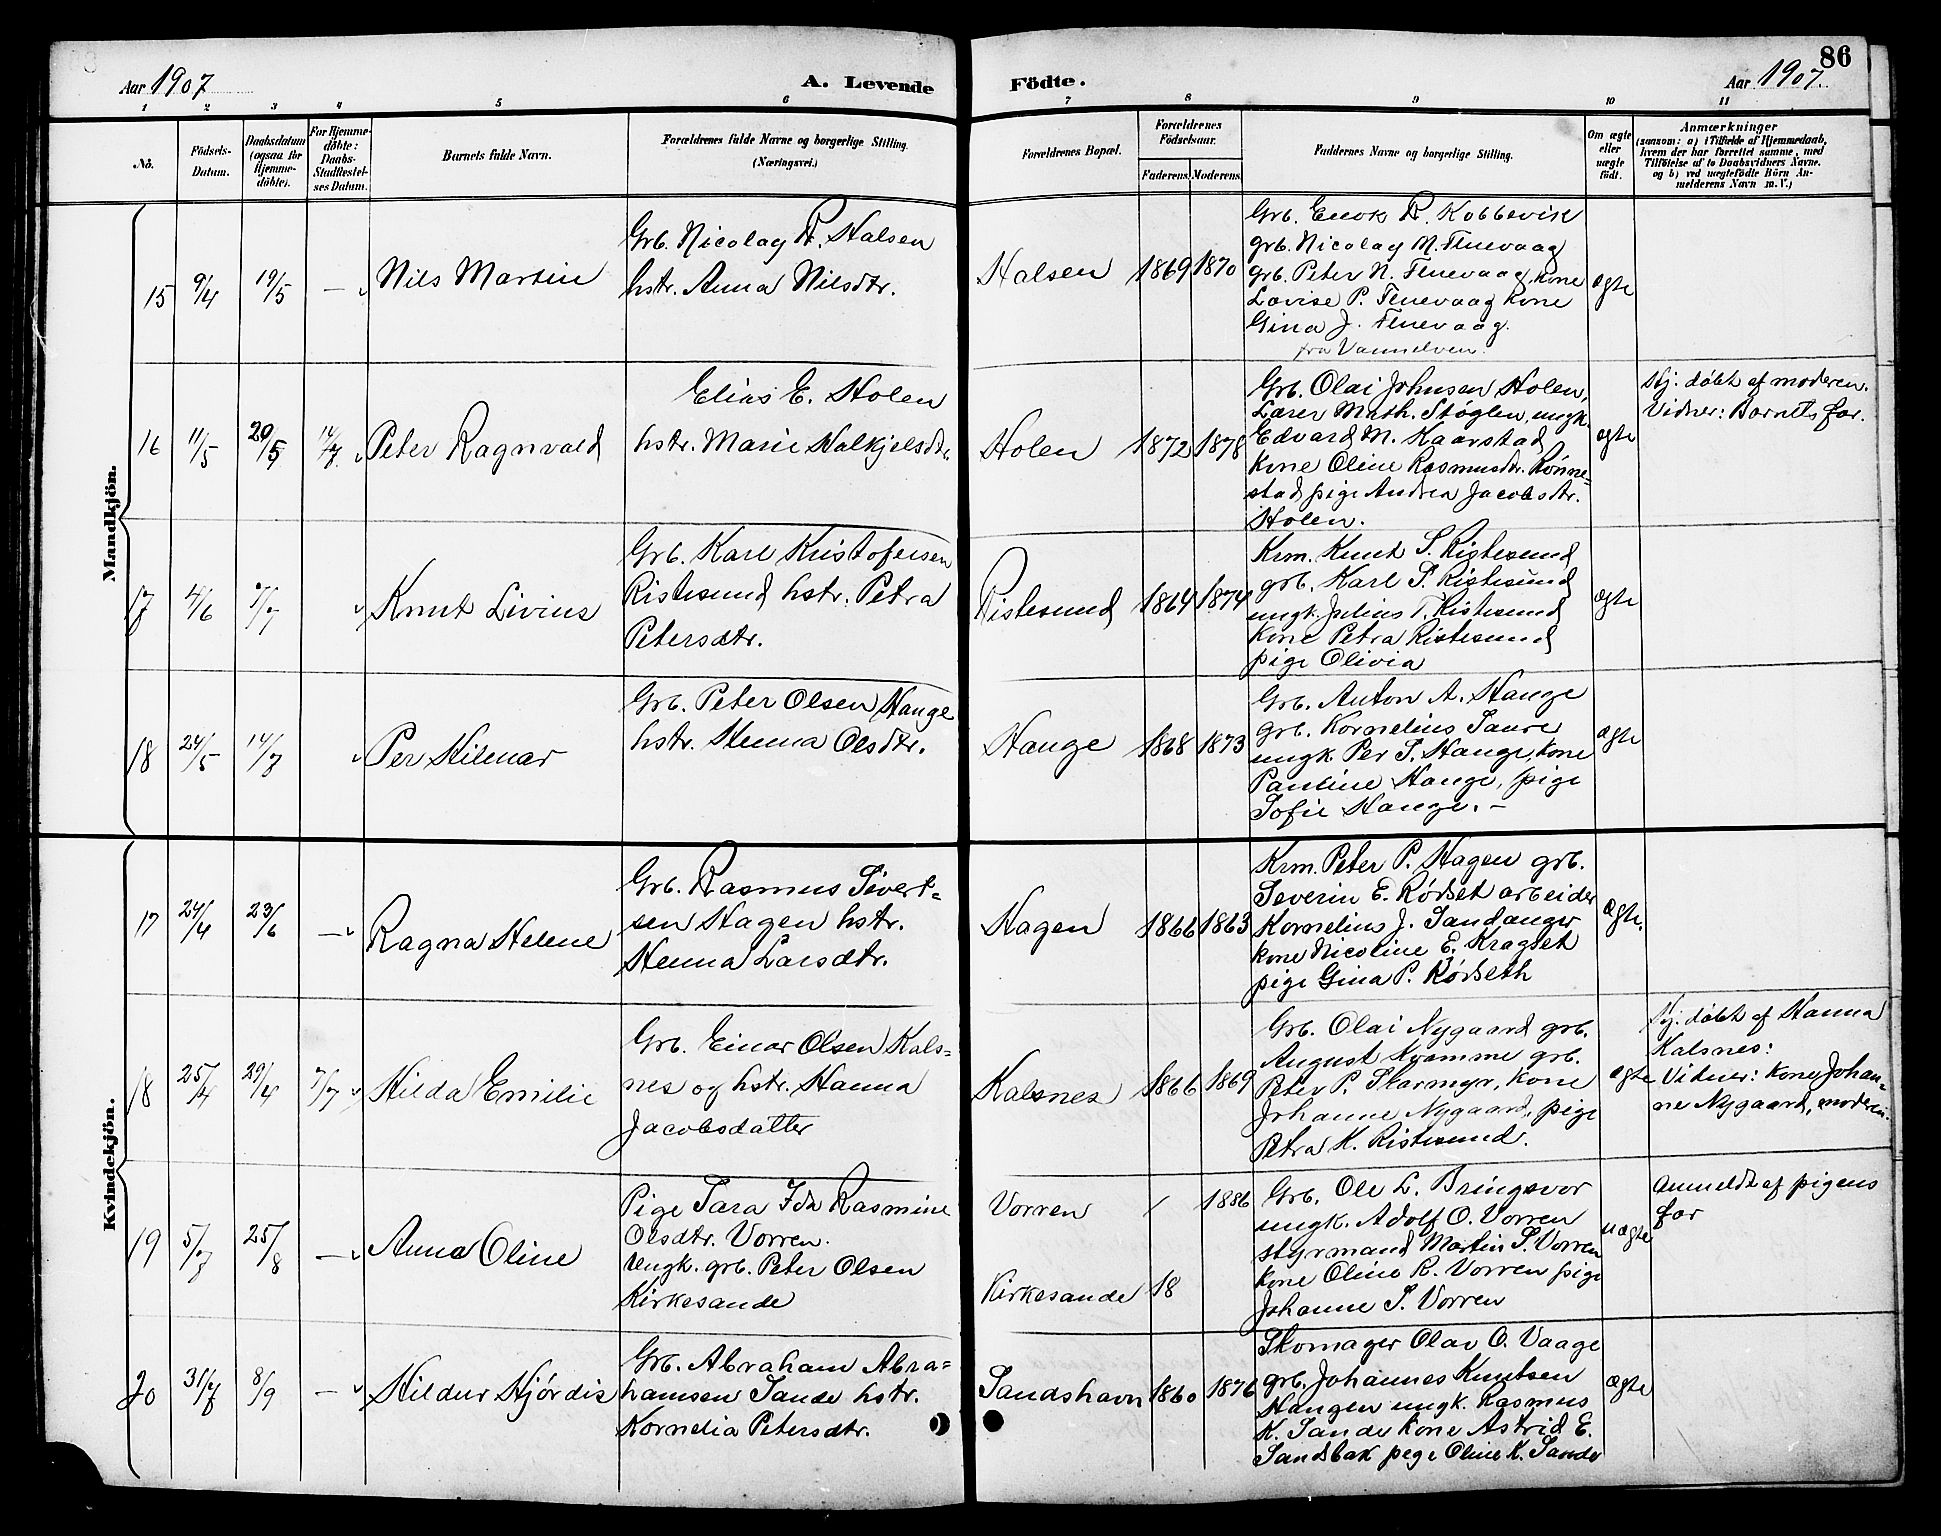 86
Aar 1907
A. Levende
Födte.
Aar 1907.
1 2 3 4 5 6 7 8 9 10 11
No.
Födsels-
Datum.
Daabsdatum
(ogsaa for
Hjemme-
döbte).
For Hjemme-
döbte:
Daabs-
Stadfæstel-
ses Datum.
Barnets fulde Navn.
Forældrenes fulde Navne og borgerlige Stilling.
(Næringsvei.)
Forældrenes Bopæl.
Forældrenes
Födselsaar.
Faderens.
Moderens.
Faddernes Navne og borgerlige Stilling.
Om ægte
eller
uægte
födt.
Anmærkninger
(saasom: a) i Tilfælde af Hjemmedaab,
hvem der har forrettet samme, med
Tilföielse af to Daabsvidners Navne.
og b) ved uægtefödte Börn An-
melderens Navn m. V.)
Mandkjön.
15 9/4 19/5 — Nils Martin
Grb. Nicolay R. Halsen
hstr. Anna Nilsdtr.
Halsen 1869 1870
Grb. Enok R. Kobbevik
grb. Nicolay N. Tenevaag
grb. Peter N. Tenevaag, kone
Lovise P. Tenevaag kone
Gina J. Tenevaag.
fra Vannelven.
ægte
16 11/5 20/5 14/7 Peter Ragnvald
Elias E. Holen
hstr. Marie Halkjelsdtr.
Holen 1872 1878
Grb. Olai Johnsen Holen,
Lærer Math. Støglen, ungk.
Edvard M. Kaarstad,
kone Oline Rasmusdtr. Rönne-
stad, pige Andrea Jacobsdtr.
Holen.
ægte
Hj. döbt af moderen.
Vidner: Barnets far.
17 4/6 7/7 Knut Livius
Grb. Karl Kristofersen
Ristesund hstr. Petra
Petersdtr.
Ristesund 1864 1874
Krm. Knut S. Ristesund
grb. Karl S. Ristesund
ungk. Julius T. Ristesund
kone Petra Ristesund
pige Olivia
ægte
18 24/5 14/7 Per Hilmar
Grb. Peter Olsen Hauge
hstr. Henna Olsdtr.
Hauge 1868 1873
Grb. Anton A. Hauge
grb. Kornelius Saure
ungk Per S. Hauge, kone
Pauline Hauge, pige
Sofie Hauge. —
ægte
Kvindekjön.
17 24/4 23/6 — Ragna Helene
Grb. Rasmus Sivert-
sen Hagen hstr.
Henna Larsdtr.
Hagen 1866 1863
Krm. Peter P. Hagen grb.
Severin E. Rödset arbeider
Kornelius J. Sandanger
kone Nicoline E. Kragset
pige Gina P. Rödseth
ægte.
18 25/4 29/4 7/7 Hilda Emilie
Grb. Einar Olsen Kals-
nes og hstr. Hanna
Jacobsdatter
Kalsnes 1866 1869
Grb. Olai Nygaard grb.
August Kvamme grb.
Peter P. Skarmyr, kone
Johanne Nygaard, pige
Petra K. Ristesund.
ægte
Hj. döbt af Hanna
Kalsnes:
Vidner: kone Johan-
ne Nygaard, moderen.
19 5/7 25/8 — Anna Oline
Pige Sara Ida Rasmine
Olsdtr. Vorren.
Ungk. grb. Peter Olsen
Kirkesande
Vorren / 1886
Kirkesande 18
Grb. Ole L. Bringsvor
ungk. Adolf O. Vorren
styrmand Martin S. Vorren
kone Oline R. Vorren pige
Johanne S. Vorren
uægte
Anmeldt af pigens
far
20 31/7 8/9 — Hildur Hjördis
Grb. Abraham Abra-
hamsen Sande hstr.
Kornelia Petersdtr.
Sandshavn 1860 1876
Skomager Olav O. Vaage
grb. Johannes Knutsen
Haugen ungk. Rasmus
K. Sande kone Astrid E.
Sandbak pige Oline K. Sande
ægte